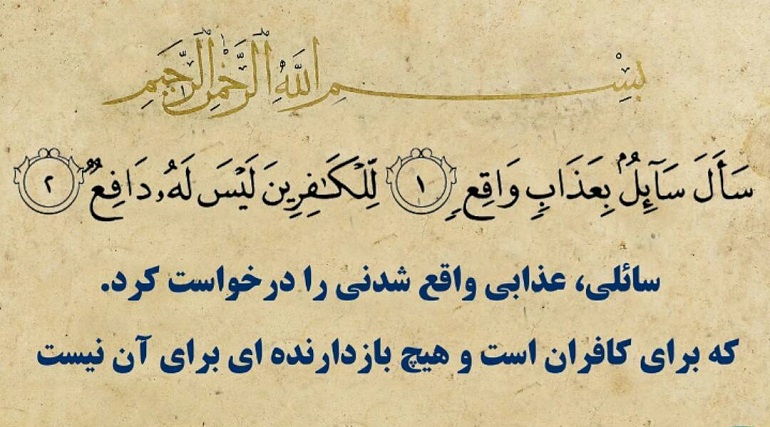 بِسْمِ اللَّهِ الرَّحْمَٰنِ الرَّحِيمِ
سَأَلَ سَآئِلُۢ بِعَذَابٍ وَاقِعٍ ١ لِّلْكَٰفِرِينَ لَيْسَ لَهُۥ دَافِعٌ ٢
سائلی، عذابی واقع شدنی را درخواست کرد.
که برای کافران است و هیچ بازدارنده ای برای آن نیست